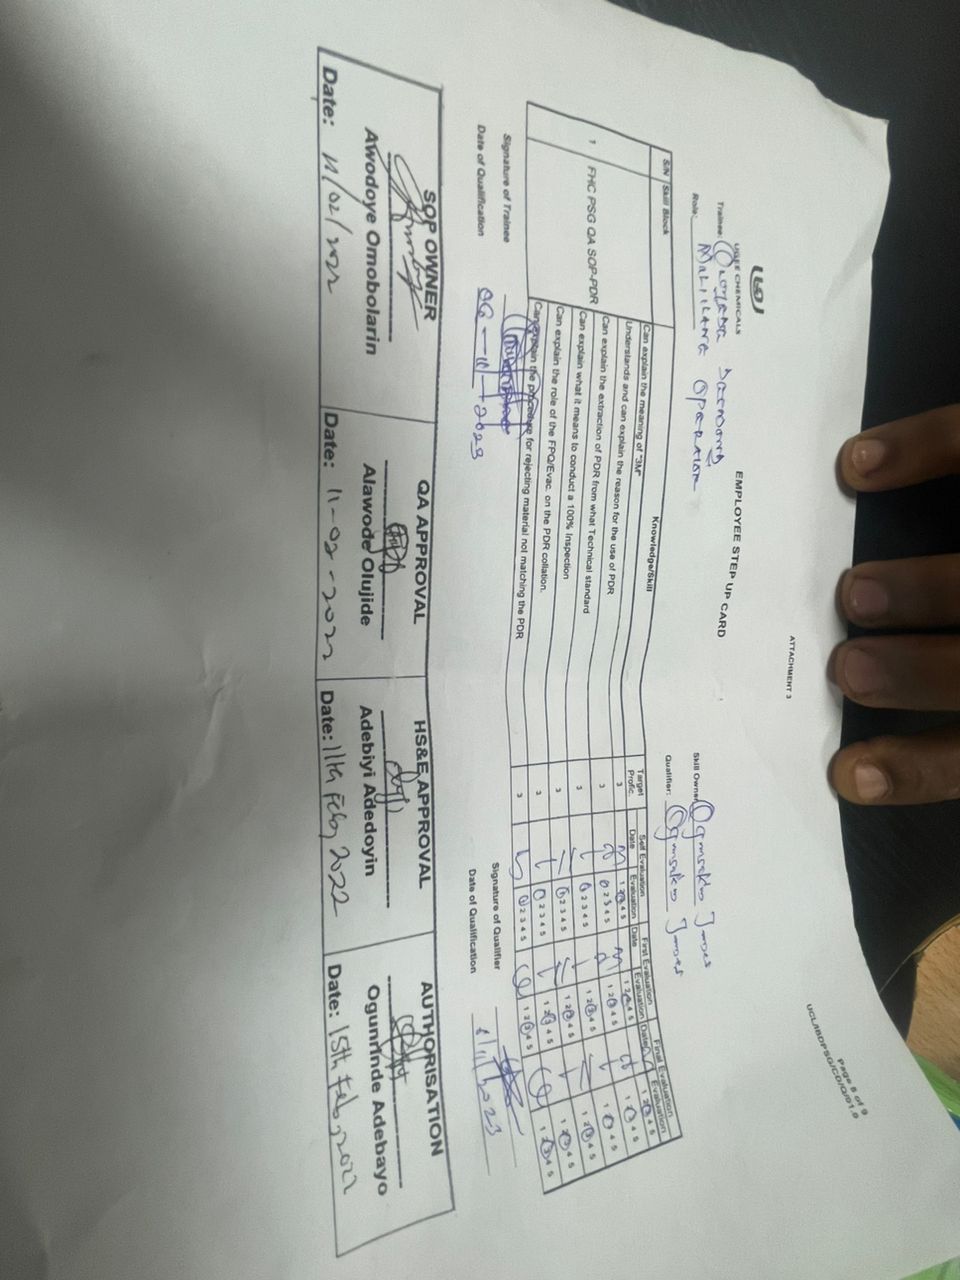 ATTACHMENT 3
Page 8 of 9
UGEE CHEMICALS
EMPLOYEE STEP UP CARD
Trainee:
Role: Operator
Skill Owner: James
Qualifier: James
S/N Skill Block Knowledge/Skill Target Profic. Self Evaluation First Evaluation Final Evaluation
Date Evaluation Date Evaluation Date Evaluation
1 FHC PSG QA SOP-PDR
Can explain the meaning of "3M" 3 1 2 3 4 5 1 2 3 4 5 1 2 3 4 5
Understands and can explain the reason for the use of PDR 3 1 2 3 4 5 1 2 3 4 5 1 2 3 4 5
Can explain the extraction of PDR from what Technical standard 3 1 2 3 4 5 1 2 3 4 5 1 2 3 4 5
Can explain what it means to conduct a 100% Inspection 3 1 2 3 4 5 1 2 3 4 5 1 2 3 4 5
Can explain the role of the FPQ/Evac. on the PDR collation. 3 1 2 3 4 5 1 2 3 4 5 1 2 3 4 5
Can explain the procedure for rejecting material not matching the PDR 3 1 2 3 4 5 1 2 3 4 5 1 2 3 4 5
Signature of Trainee
Signature of Qualifier
Date of Qualification 06-11-2023
Date of Qualification 6/11/2023
SOP OWNER QA APPROVAL HS&E APPROVAL AUTHORISATION
Awodoye Omobolarin Alawode Olujide Adebiyi Adedoyin Ogunrinde Adebayo
Date: 11/02/2022 Date: 11-02-2022 Date: 11th Feb, 2022 Date: 15th Feb, 2022